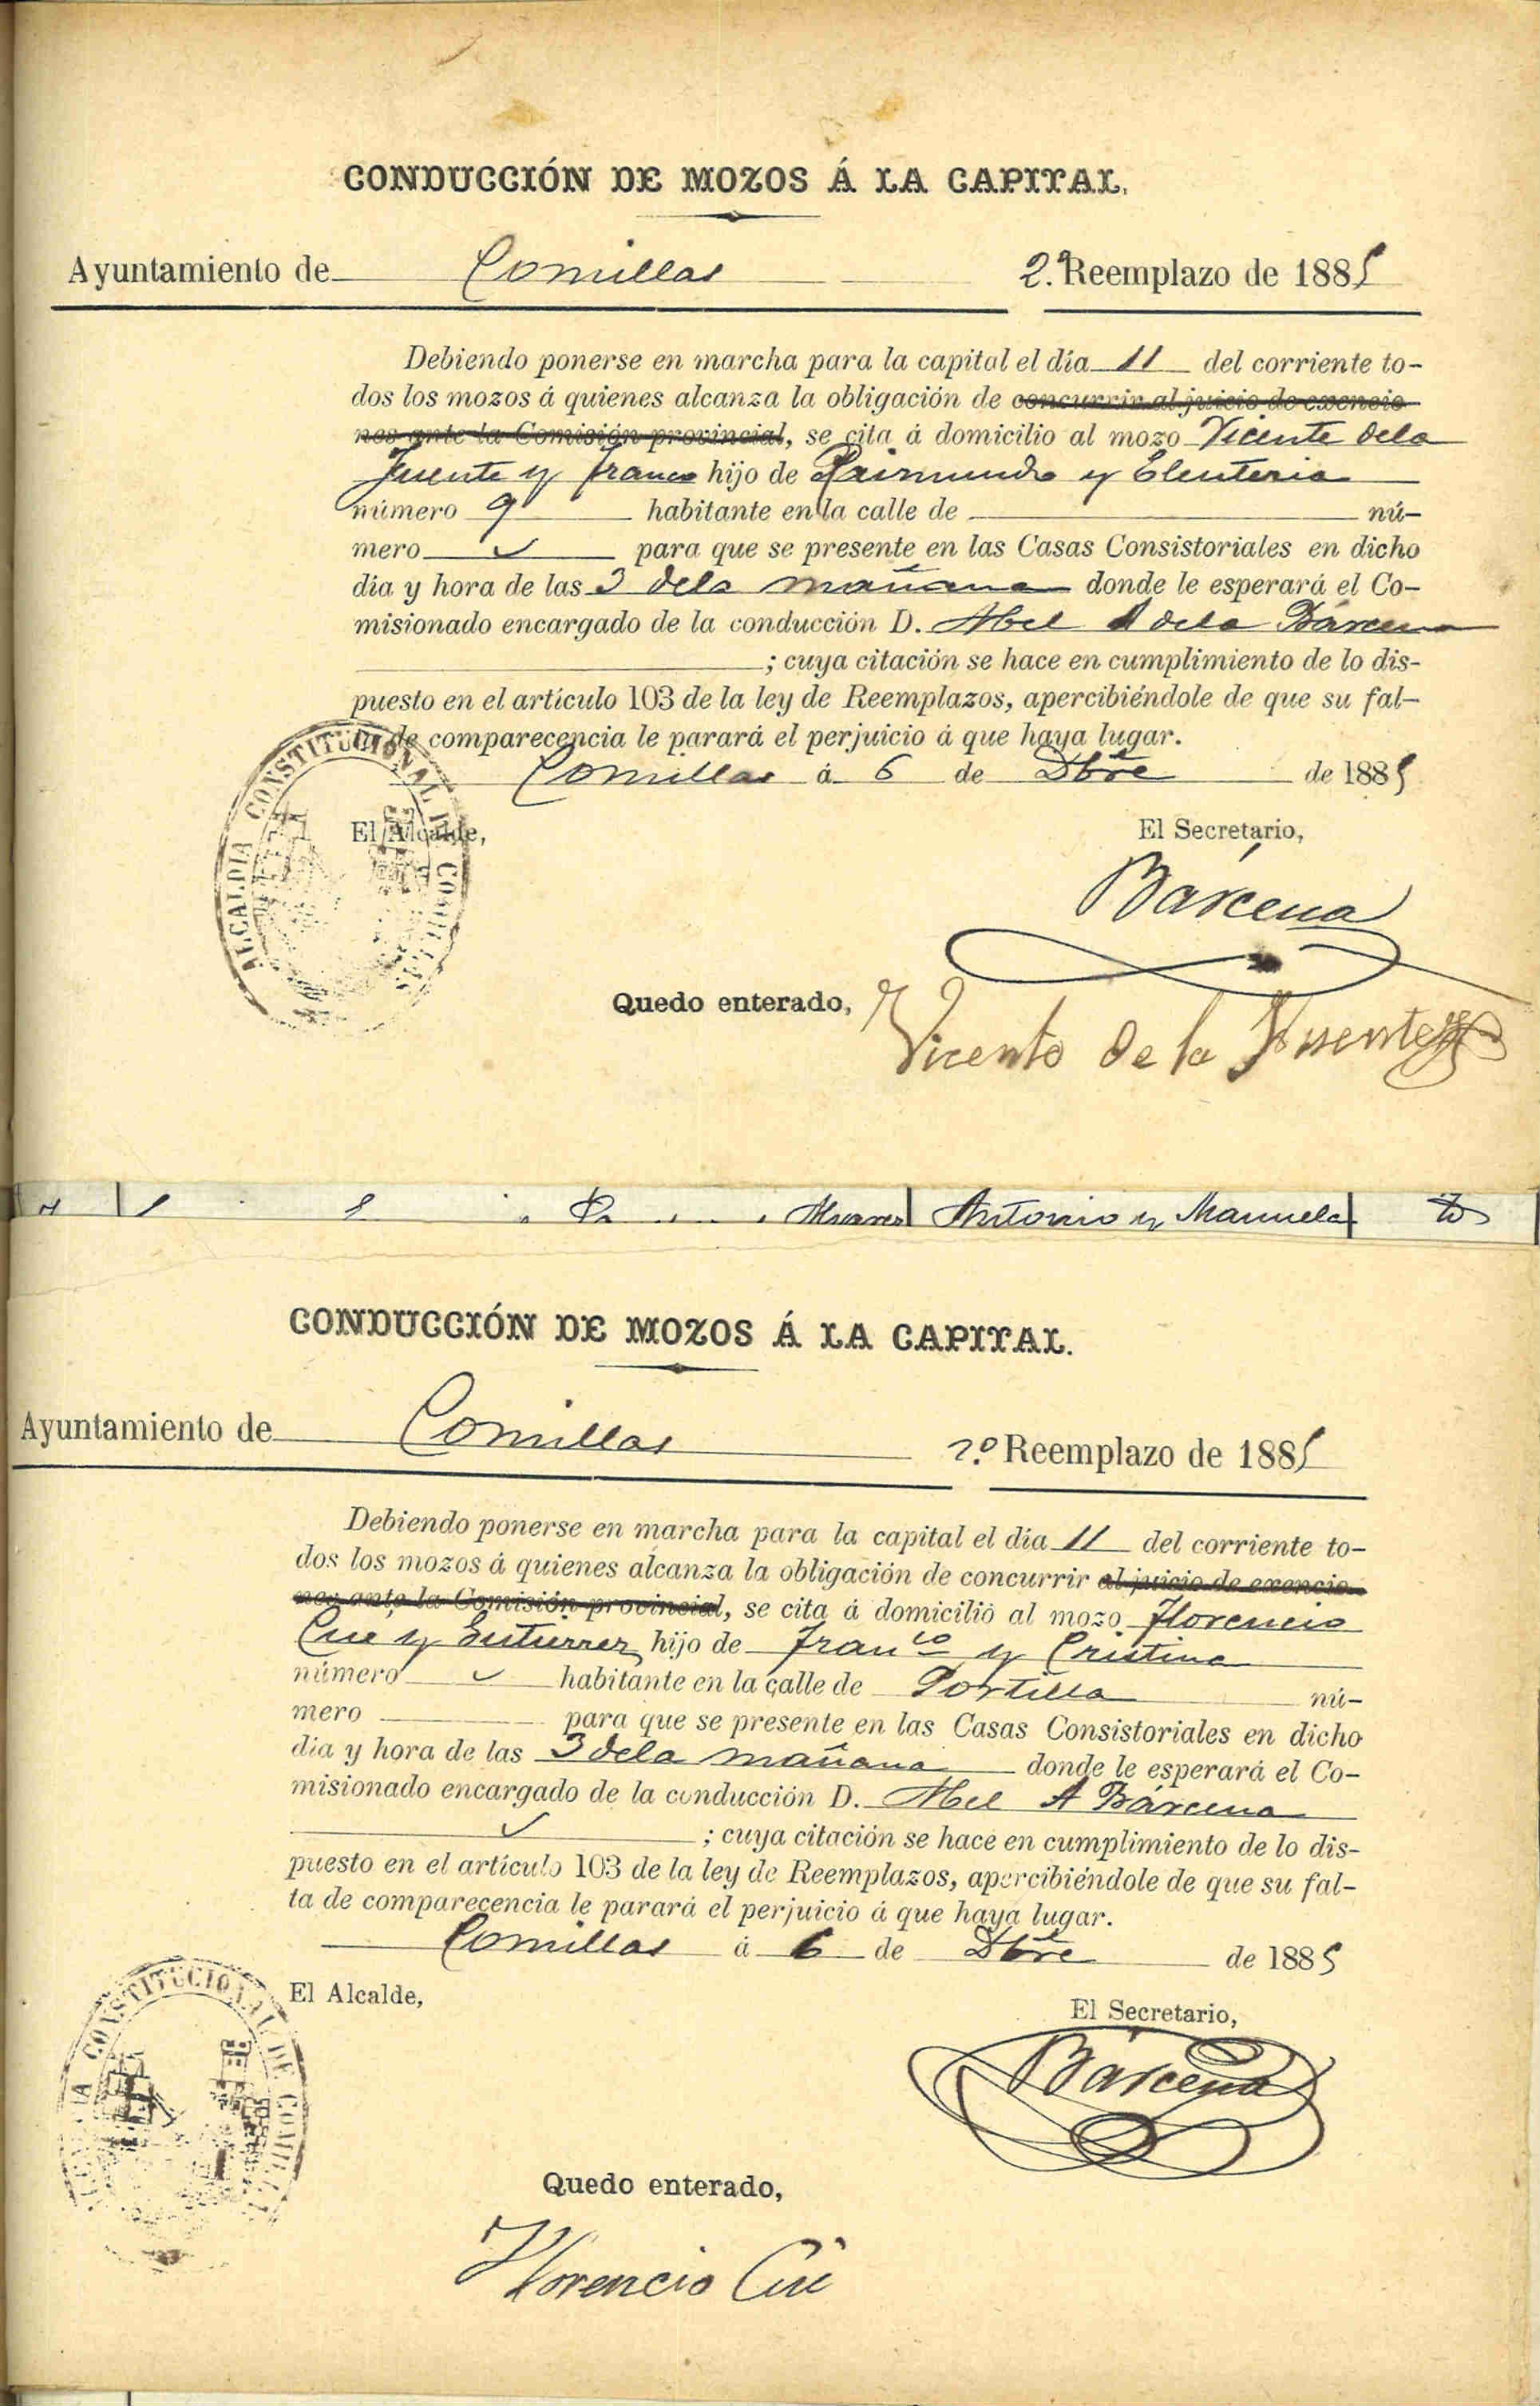 CONDUCCIÓN DE MOZOS Á LA CAPITAL.
Ayuntamiento de Comillas 2.º Reemplazo de 1885
Debiendo ponerse en marcha para la capital el día 11 del corriente to-
dos los mozos á quienes alcanza la obligación de concurrir al juicio de exencio-
nes ante la Comisión provincial, se cita á domicilio al mozo Vicente dela
Fuente y Franco hijo de Raimundo y Eleuteria
número 9 habitante en la calle de nú-
mero para que se presente en las Casas Consistoriales en dicho
día y hora de las 3 dela mañana donde le esperará el Co-
misionado encargado de la conducción D. Abel A dela Bárcena
; cuya citación se hace en cumplimiento de lo dis-
puesto en el artículo 103 de la ley de Reemplazos, apercibiéndole de que su fal-
ta de comparecencia le parará el perjuicio á que haya lugar.
Comillas á 6 de Dbre de 1885
El Alcalde, El Secretario,
ALCALDIA CONSTITUCIONAL DE COMILLAS
Bárcena
Quedo enterado,
Vicente de la Fuente
Alvarez Antonio y Manuela
CONDUCCIÓN DE MOZOS Á LA CAPITAL.
Ayuntamiento de Comillas 2.º Reemplazo de 1885
Debiendo ponerse en marcha para la capital el día 11 del corriente to-
dos los mozos á quienes alcanza la obligación de concurrir al juicio de exencio-
nes ante la Comisión provincial, se cita á domicilio al mozo Florencio
Cue y Gutierrez hijo de Franco y Cristina
número habitante en la calle de Portilla nú-
mero para que se presente en las Casas Consistoriales en dicho
día y hora de las 3 dela mañana donde le esperará el Co-
misionado encargado de la conducción D. Abel A Bárcena
; cuya citación se hace en cumplimiento de lo dis-
puesto en el artículo 103 de la ley de Reemplazos, apercibiéndole de que su fal-
ta de comparecencia le parará el perjuicio á que haya lugar.
Comillas á 6 de Dbre de 1885
El Alcalde,
El Secretario,
ALCALDIA CONSTITUCIONAL DE COMILLAS
Bárcena
Quedo enterado,
Florencio Cue